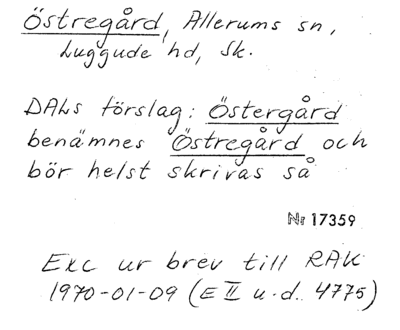 Östregård, Allerums sn,
Luggude hd, Sk.
DALs förslag: Östergård
benämnes Östregård och
bör helst skrivas så
Nr 17359
Exc ur brev till RAK
1970-01-09 (E II u.d. 4775)